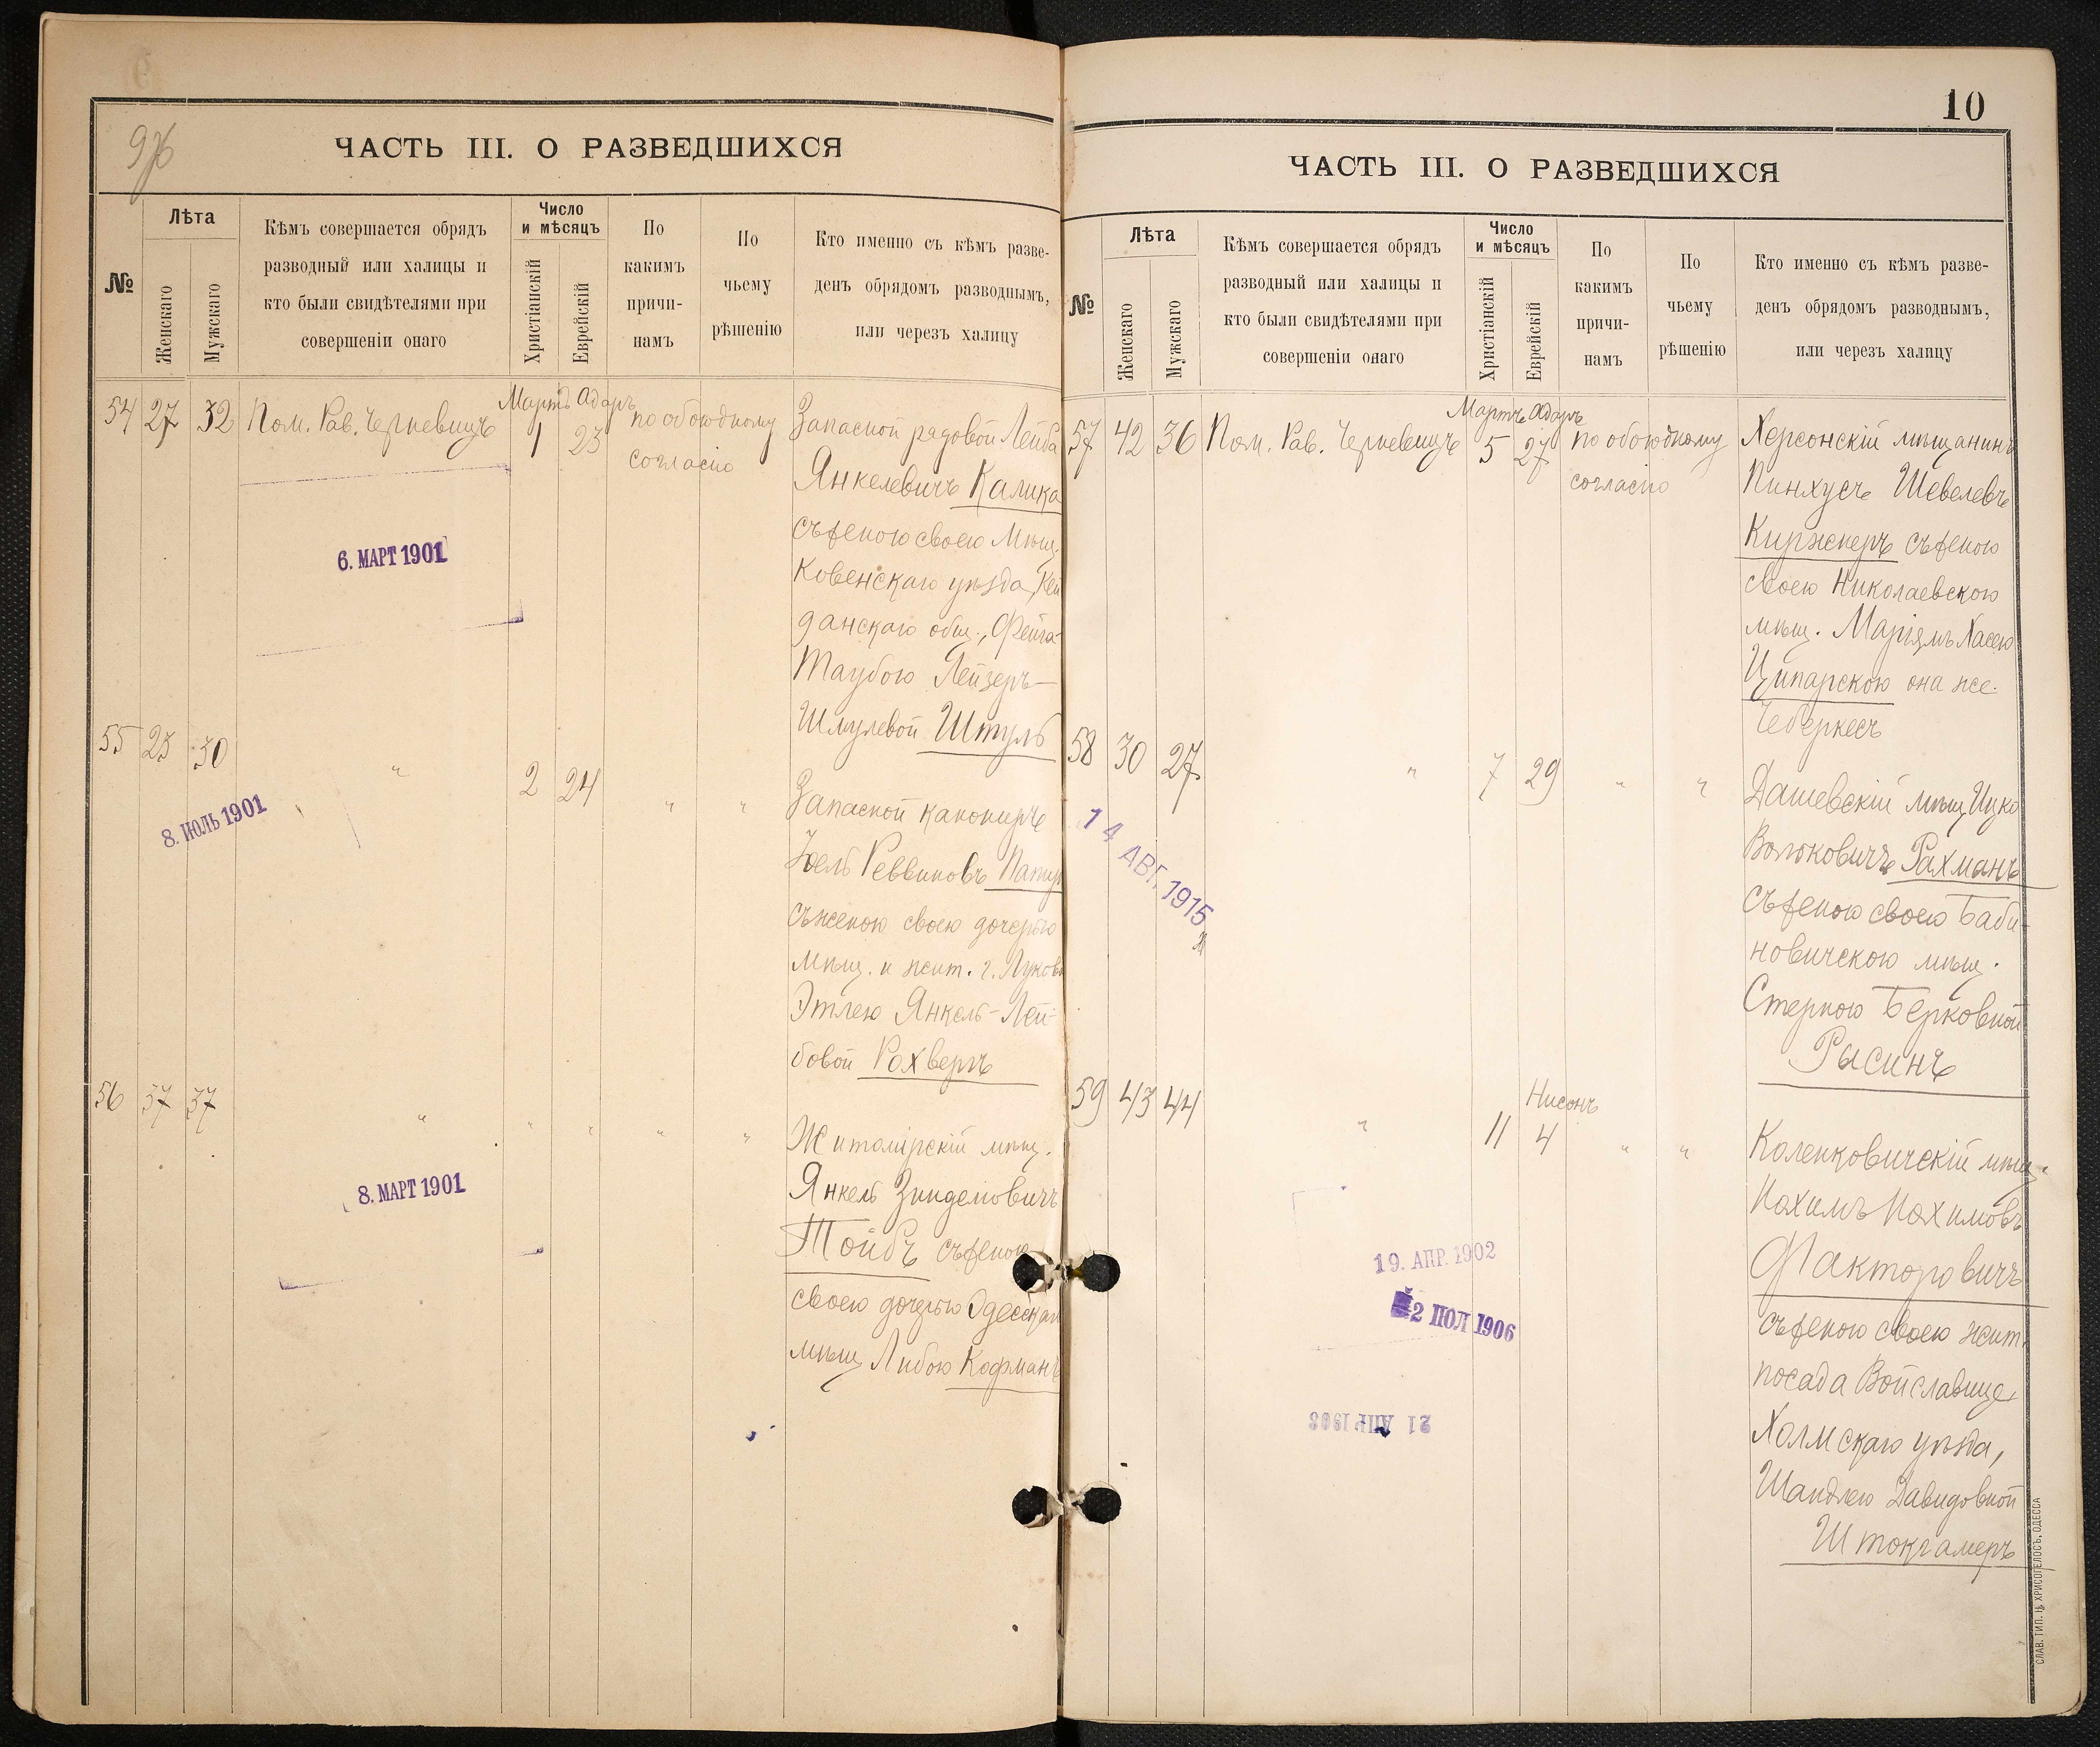 ЧАСТЬ III. О РАЗВЕДШИХСЯ
№
Лѣта
Женскаго
Мужскаго
Кѣмъ совершается обрядъ
разводный или халицы и
кто были свидѣтелями при
совершеніи онаго
Число
и мѣсяцъ
Христіанскій
Еврейскій
По
какимъ
причи-
намъ
По
чьему
рѣшенію
Кто именно съ кѣмъ разве-
денъ обрядомъ разводнымъ,
или черезъ халицу
54 27 32 Пом. Рав. Черкевицъ Мартъ 1 Адаръ 23 по обоюдному
согласію
Запасной рядовой Лейба
Янкелевичъ Калика
съ женою своею мѣщ.
Ковенскаго уѣзда, Кей
данскаго общ., Фейга-
Таубою Лейзеръ-
Шмулевой Штуль
6. МАРТ 1901
55 25 30 " 2 24 " "
Запасной канониръ
Іоель Реввиновъ
съ женою своею дочерью
мѣщ. и жит. г. Лукова
Этлею Янкель-Лей-
бовой Рохверъ
8. ИЮЛЬ 1901
56 37 37 " " " " "
Житомірскій мѣщ.
Янкель Зинделовичъ
Тойбъ съ женою
своею дочерью Одесскаго
мѣщ Либою Кофманъ
8. МАРТ 1901
10
ЧАСТЬ III. О РАЗВЕДШИХСЯ
№
Лѣта
Женскаго
Мужскаго
Кѣмъ совершается обрядъ
разводный или халицы и
кто были свидѣтелями при
совершеніи онаго
Число
и мѣсяцъ
Христіанскій
Еврейскій
По
какимъ
причи-
намъ
По
чьему
рѣшенію
Кто именно съ кѣмъ разве-
денъ обрядомъ разводнымъ,
или черезъ халицу
57 42 36 Пом. Рав. Черкевицъ Мартъ 5 Адаръ 27 по обоюдному
согласію
Херсонскій мѣщанинъ
Пинхусъ Шевелевъ
Киржнеръ съ женою
своею Николаевскою
мѣщ. Маріямъ Хасею
Ципарскою она же
Чеберкесъ
58 30 27 " 7 29 " "
Дашевскій мѣщ Ицко
Волковичъ Рахманъ
съ женою своею Баби-
новичскою мѣщ.
Стерною Берковной
Рысинъ
14 АВГ. 1915
59 43 44 " 11 Нисонъ 4 " "
Коленковичскій мѣщ.
Нохимъ Нохимовъ
Факторовичъ
съ женою своею жит.
посада Войславице,
Холмскаго уѣзда,
Шандлею Давидовной
Штокгамеръ
19. АПР. 1902
2 ПОЛ 1906
21 АПР 1903
СЛАВ. ТИП. Н. ХРИСОГЕЛОСЪ, ОДЕССА